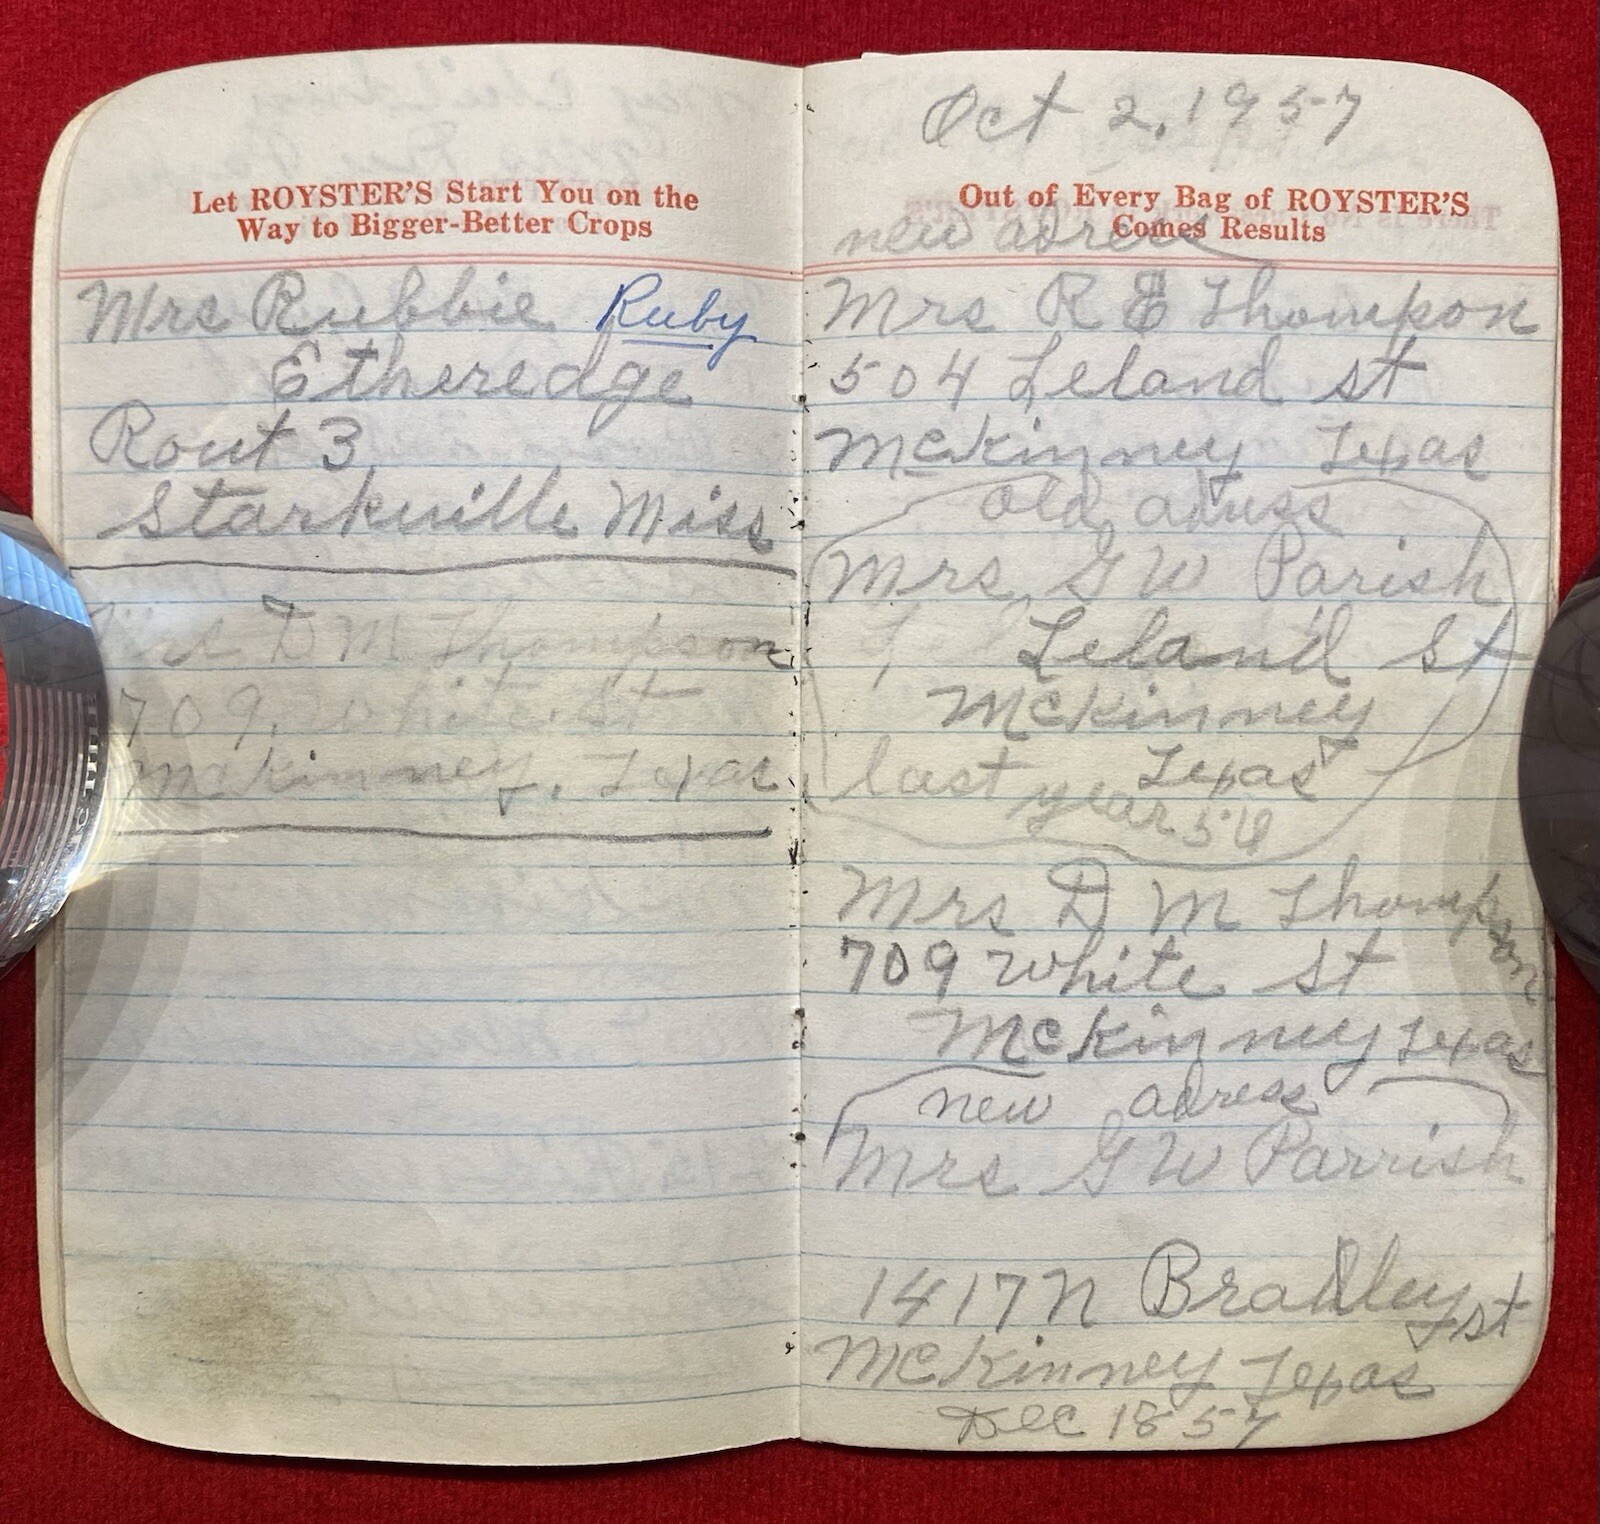 Let ROYSTER'S Start You on the
Way to Bigger-Better Crops
Mrs Rubbie Ruby
Etheredge
Rout 3
Starkville Miss
Mrs D M Thompson
709 White St
McKinney, Texas
Oct 2, 1957
Out of Every Bag of ROYSTER'S
Comes Results
new adress
Mrs R E Thompson
504 Leland st
McKinney Texas
old adress
Mrs G W Parish
Leland St
McKinney
Texas
last year 56
Mrs D M Thompson
709 White St
McKinney Texas
new adress
Mrs G W Parrish
1417 N Bradley st
McKinney Texas
Dec 18 57